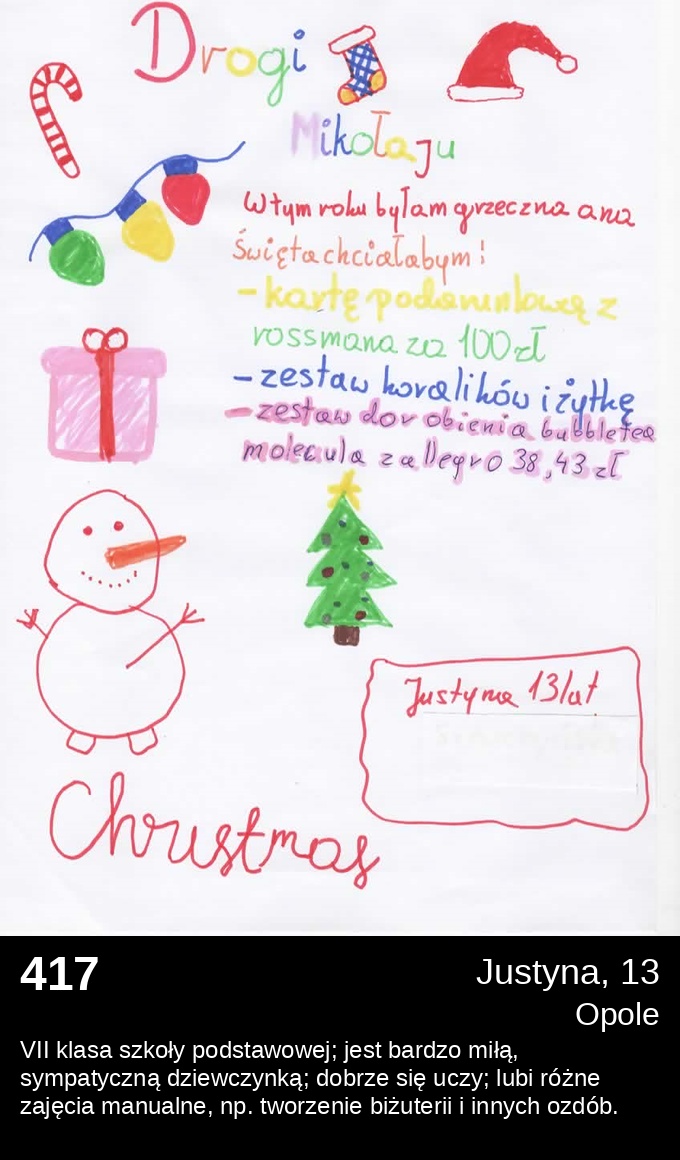 Drogi
Mikołaju
W tym roku byłam grzeczna a na
Święta chciałabym:
- kartę podarunkową z
rossmana za 100 zł
- zestaw koralików i żyłkę
- zestaw do robienia bubbletea
molecula z allegro 38,43 zł
Justyna 13 lat
Christmas
417
Justyna, 13
Opole
VII klasa szkoły podstawowej; jest bardzo miłą,
sympatyczną dziewczynką; dobrze się uczy; lubi różne
zajęcia manualne, np. tworzenie biżuterii i innych ozdób.